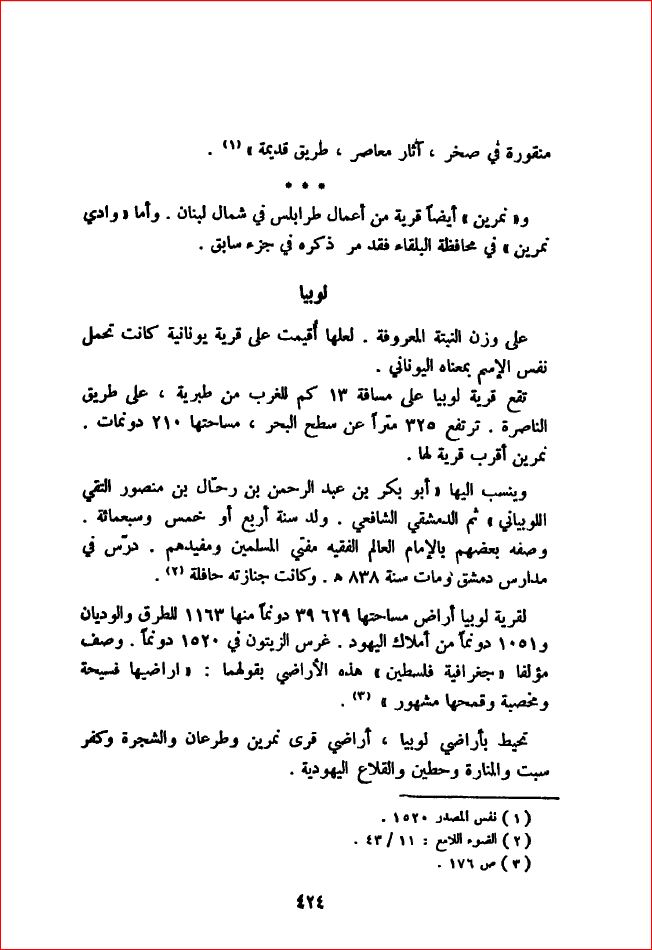 منقورة في صخر ، آثار معاصر ، طريق قديمة » (١) .
* * *
و« نمرين » أيضاً قرية من أعمال طرابلس في شمال لبنان . وأما « وادي
نمرين » في محافظة البلقاء فقد مر ذكره في جزء سابق .
لوبيا
على وزن النبتة المعروفة . لعلها أُقيمت على قرية يونانية كانت تحمل
نفس الإسم بمعناه اليوناني .
تقع قرية لوبيا على مسافة ١٣ كم للغرب من طبرية ، على طريق
الناصرة . ترتفع ٣٢٥ متراً عن سطح البحر ، مساحتها ٢١٠ دونمات .
نمرين أقرب قرية لها .
وينسب اليها « أبو بكر بن عبد الرحمن بن رحّال بن منصور التقي
اللوبياني » ثم الدمشقي الشافعي . ولد سنة أربع أو خمس وسبعمائة .
وصفه بعضهم بالإمام العالم الفقيه مفتي المسلمين ومفيدهم . درّس في
مدارس دمشق ومات سنة ٨٣٨ ه . وكانت جنازته حافلة (٢) .
لقرية لوبيا أراض مساحتها ٣٩ ٦٢٩ دونماً منها ١١٦٣ للطرق والوديان
و١٠٥١ دونماً من أملاك اليهود . غرس الزيتون في ١٥٢٠ دونماً . وصف
مؤلفا « جغرافية فلسطين » هذه الأراضي بقولهما : « اراضيها فسيحة
ومخصبة وقمحها مشهور » (٣) .
تحيط بأراضي لوبيا ، أراضي قرى نمرين وطرعان والشجرة وكفر
سبت والمنارة وحطين والقلاع اليهودية .
(١) نفس المصدر ١٥٢٠ .
(٢) الضوء اللامع : ١١ / ٤٣ .
(٣) ص ١٧٦ .
٤٢٤